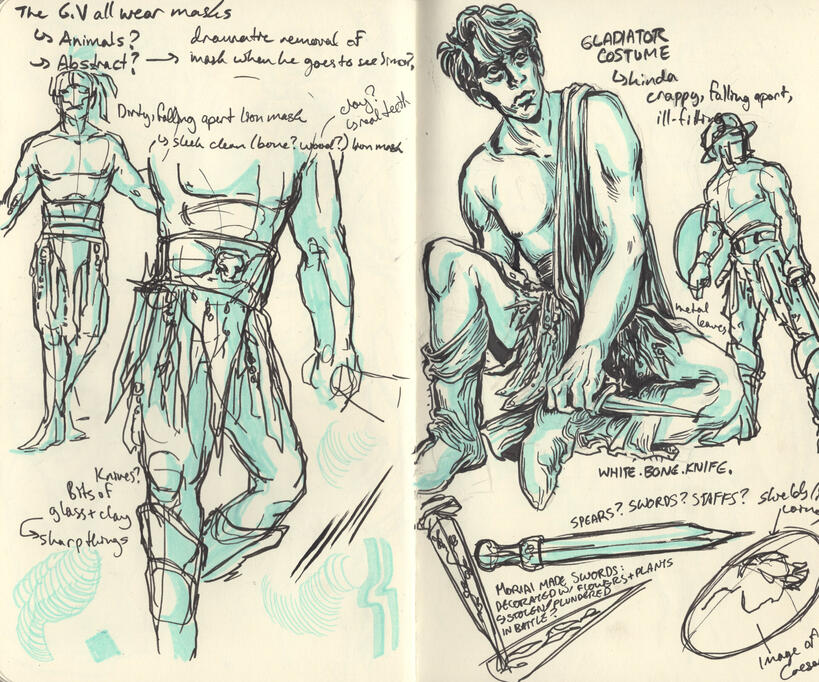 The G.V all wear masks
↳ Animals?
↳ Abstract? → dramatic removal of
mask when he goes to see
Dirty, falling apart lion mask
↳ sleek clean (bone? wood?) lion mask
clay?
↳ real teeth
Knives?
Bits of
glass + clay
↳ sharp things
GLADIATOR
COSTUME
↳ kinda
crappy, falling apart,
ill-fitting
metal
leaves
WHITE.BONE.KNIFE.
SPEARS? SWORDS? STAFFS?
MORIAI MADE SWORDS:
DECORATED W/ FLOWERS + PLANTS
STOLEN/PLUNDERED
IN BATTLE?
Image of
Caesar